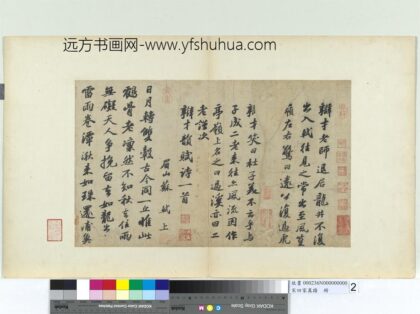 远方书画网-www.yfshuhua.com
辯才老師退居龍井不復
出入軾往見之常出至風篁
嶺左右驚曰遠公復過虎
溪矣
辯才笑曰杜子美不云乎與
子成二老來往亦風流因作
亭嶺上名之曰過溪亦曰二
老謹次
辯才韻賦詩一首
眉山蘇軾上
日月轉雙轂古今同一丘惟此
鶴骨老凜然不知秋去住兩
無礙天人爭挽留去如龍出
雷雨卷潭湫來如珠還浦魚
2